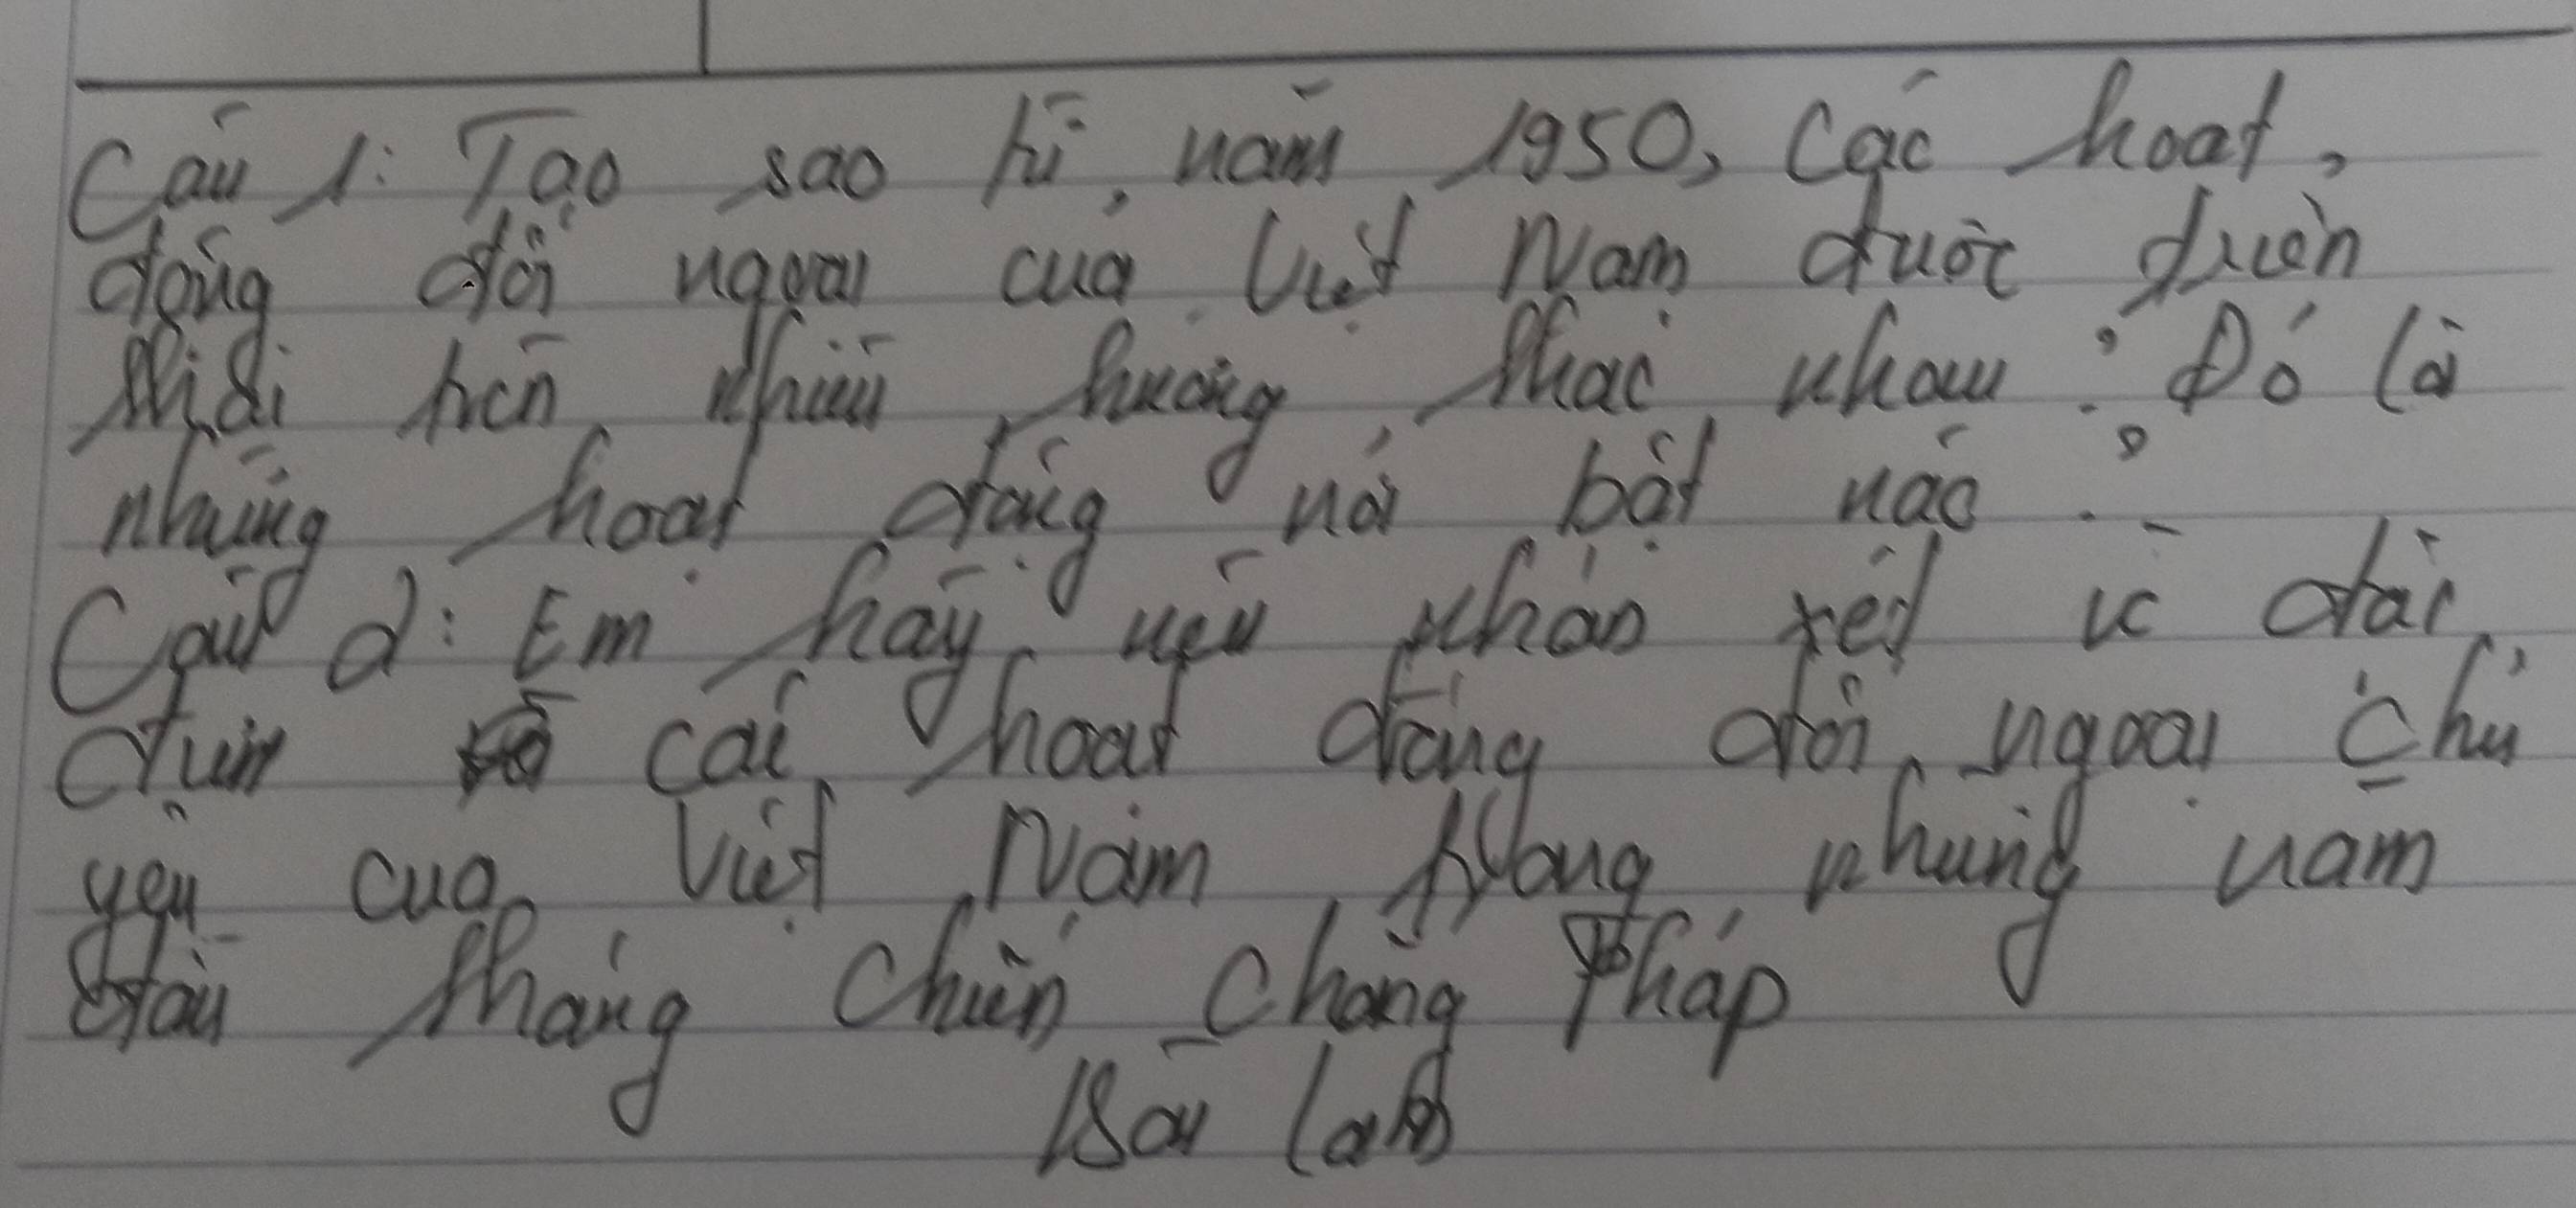 Câu 1: Tạo sao từ năm 1950, các hoạt
động đối ngoại của Việt Nam được triển
khai trên nhiều hướng khác nhau ? Đó là
những hoạt động nổi bật nào ?
Câu 2: Em hãy nêu nhận xét về đặc
điểm các hoạt động đối ngoại chủ
yếu của Việt Nam trong những năm
đầu kháng chiến chống Pháp
Bài làm